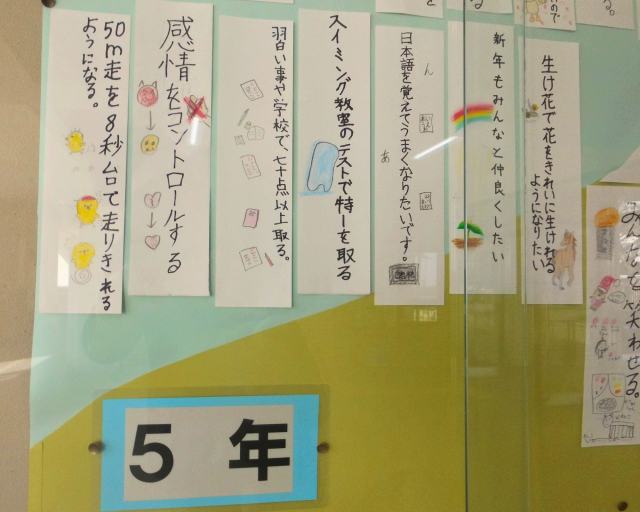 みんなを笑わせる。
生け花で花をきれいに生けれる
ようになりたい
新年もみんなと仲良くしたい
日本語を覚えてうまくなりたいです。
ん
あ
スイミング教室のテストで特一を取る
習い事や学校で、七十点以上取る。
感情をコントロールする
50m走を8秒台で走りきれる
ようになる。
5年